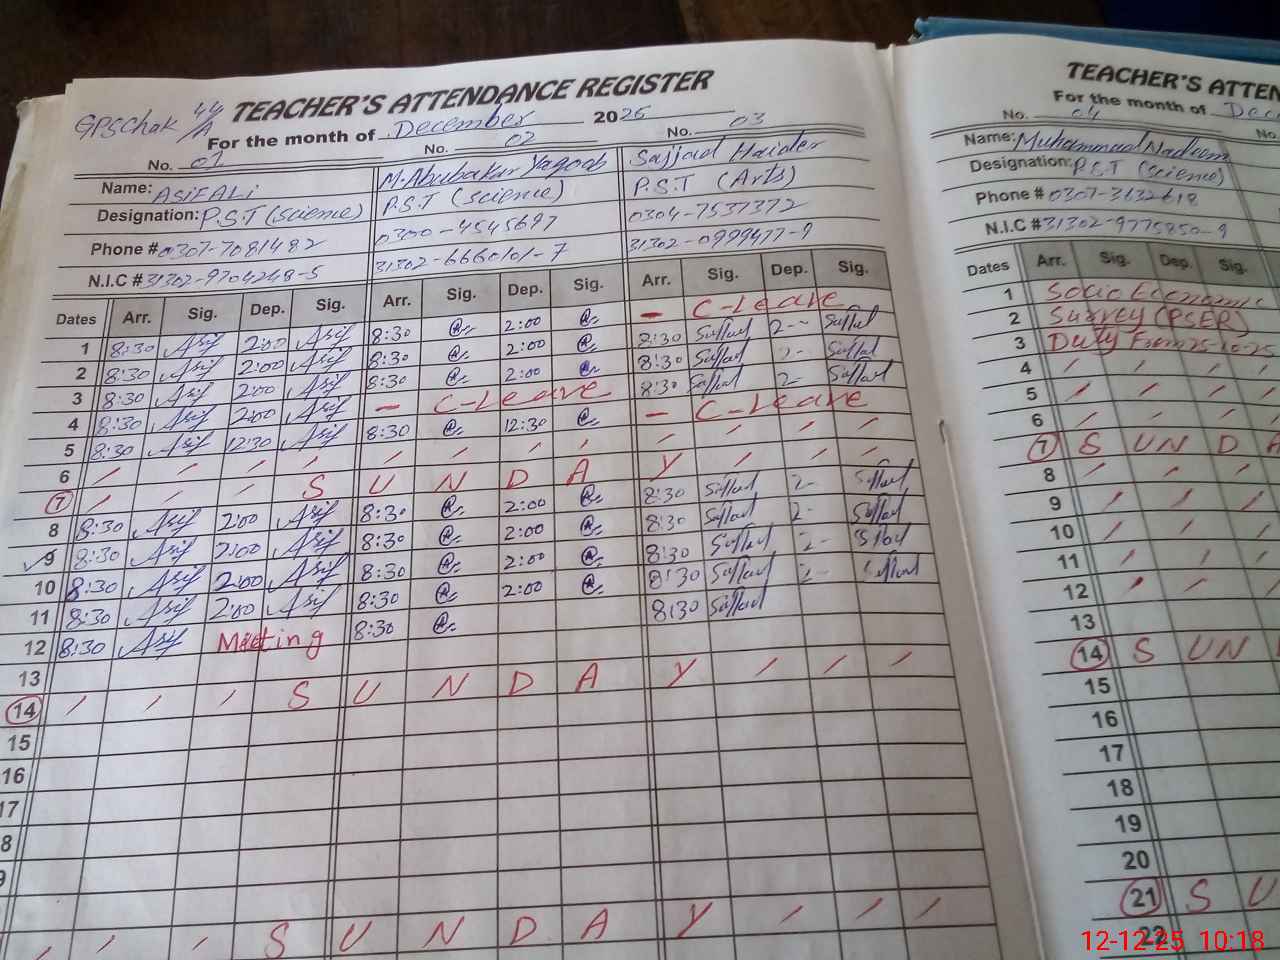 TEACHER'S ATTENDANCE REGISTER
GPS Chak 44/A
For the month of December 2025
No. 01 No. 02 No. 03
Name: ASIF ALI M. Abubakar Yaqoob Sajjad Haider
Designation: P.S.T (science) P.S.T (science) P.S.T (Arts)
Phone # 0307-7081482 0300-4545697 0304-7537372
N.I.C # 31302-9704248-5 31302-6660101-7 31302-0999477-9
Dates Arr. Sig. Dep. Sig. Arr. Sig. Dep. Sig. Arr. Sig. Dep. Sig.
1 8:30 Asif 2:00 Asif 8:30 2:00 - C-Leave
2 8:30 Asif 2:00 Asif 8:30 2:00 8:30 Sajjad 2-- Sajjad
3 8:30 Asif 2:00 Asif 8:30 2:00 8:30 Sajjad 2- Sajjad
4 8:30 Asif 2:00 Asif - C-Leave 8:30 Sajjad 2- Sajjad
5 8:30 Asif 12:30 Asif 8:30 12:30 - C-Leave
6 / / / / / / / / / / / /
7 / / / S U N D A Y / / /
8 8:30 Asif 2:00 Asif 8:30 2:00 8:30 Sajjad 2- Sajjad
9 8:30 Asif 2:00 Asif 8:30 2:00 8:30 Sajjad 2- Sajjad
10 8:30 Asif 2:00 Asif 8:30 2:00 8:30 Sajjad 2- Sajjad
11 8:30 Asif 2:00 Asif 8:30 2:00 8:30 Sajjad 2- Sajjad
12 8:30 Asif Meeting 8:30 8:30 Sajjad
13
14 / / / S U N D A Y / / /
15
16
17
8
9
/ / / S U N D A Y / / /
TEACHER'S ATTEN
For the month of Dec
No. 04
Name: Muhammad Nadeem
Designation: P.S.T (science)
Phone # 0307-3632618
N.I.C # 31302-9775850-9
Dates Arr. Sig. Dep. Sig.
1 Socio Economic
2 Survey (PSER)
3 Duty From 25-10-25
4 / / /
5 / / /
6 / / /
7 S U N D A
8 / / /
9 / / /
10 / / /
11 / / /
12 / / /
13
14 S U N
15
16
17
18
19
20
21 S U
22
12-12-25 10:18